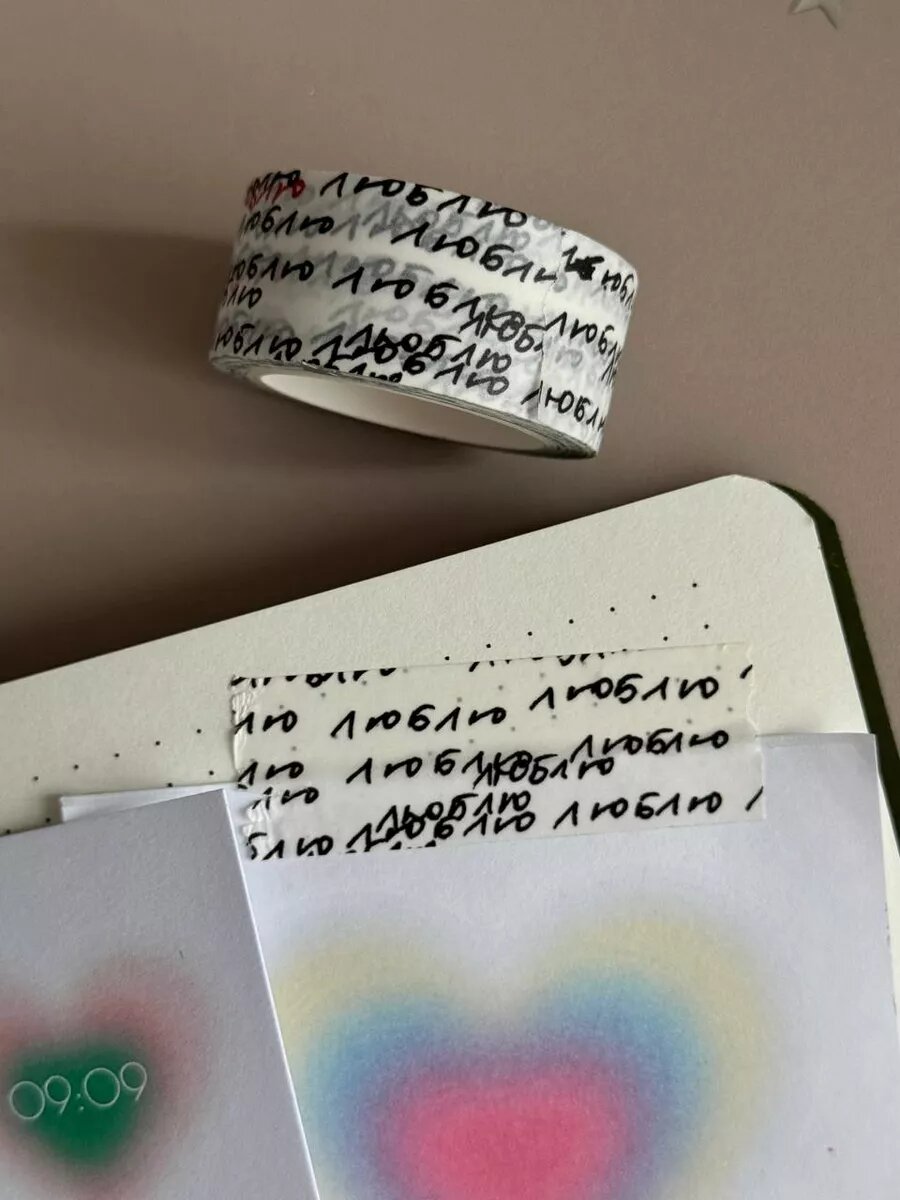 люблю люблю
люблю люблю люблю
люблю люблю люблю
люблю
люблю люблю
люблю люблю
лю люблю люблю
лю люблю люблю люблю
лю люблю
люблю люблю
09:09